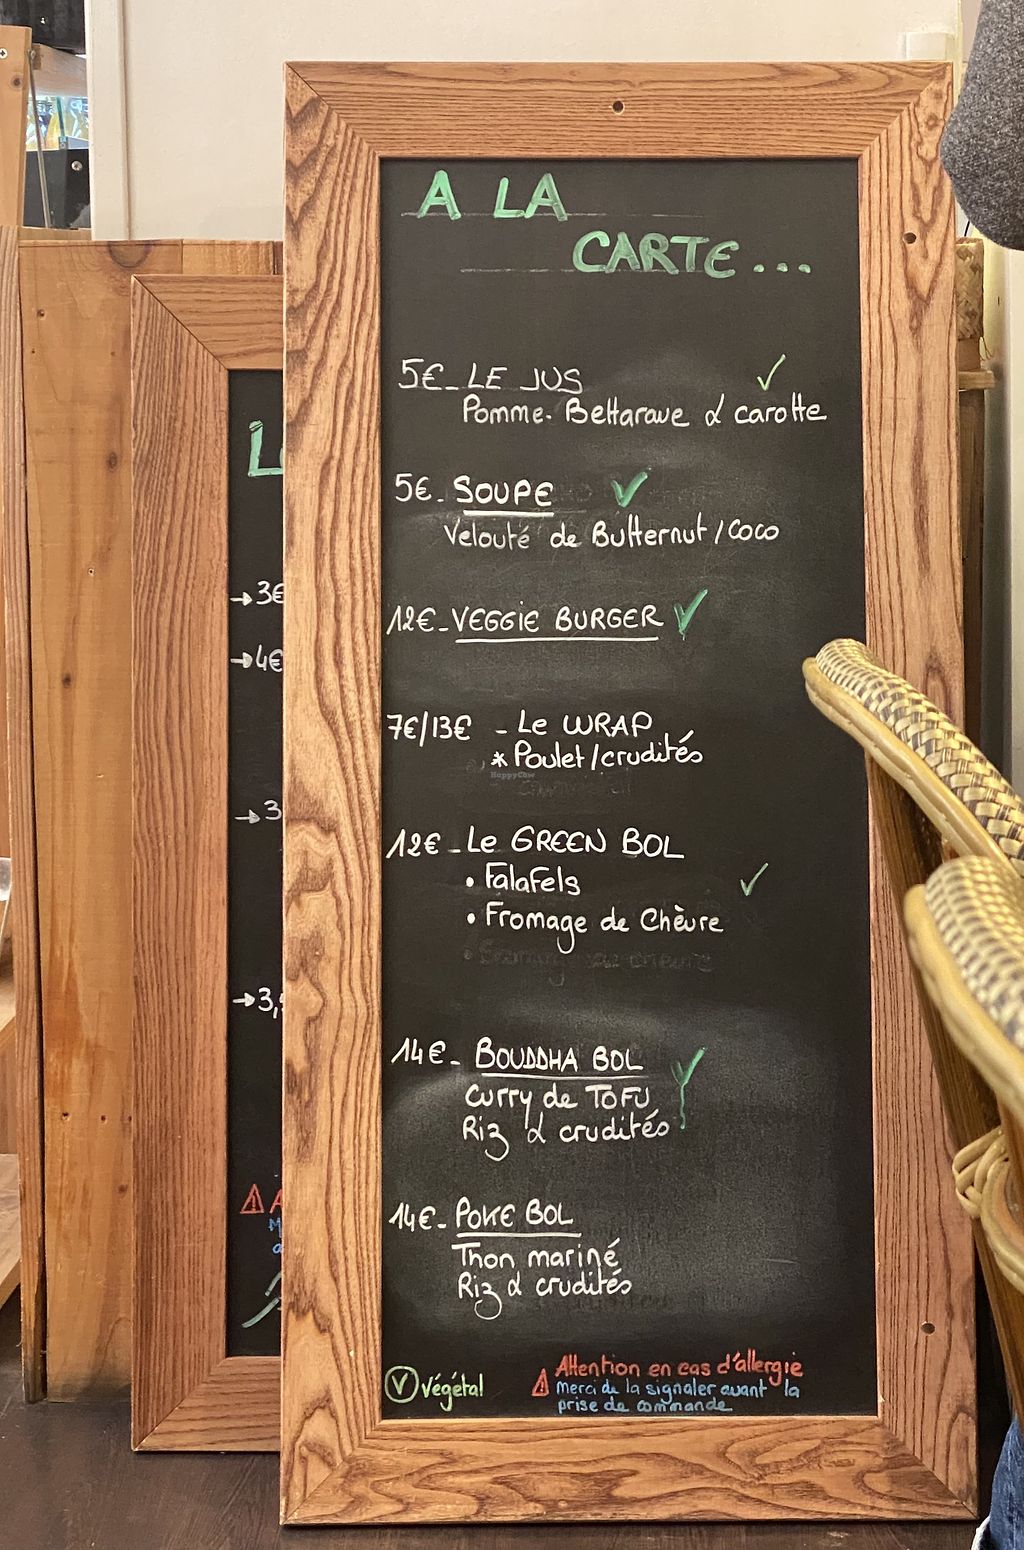 A LA
CARTE...
5€ - LE JUS ✓
Pomme - Bettarave & carotte
5€ - SOUPE ✓
Velouté de Butternut / coco
12€ - VEGGIE BURGER ✓
7€/13€ - Le WRAP
* Poulet / crudités
HappyCow
12€ - Le GREEN BOL
• Falafels ✓
• Fromage de Chèvre
14€ - BOUDDHA BOL ✓
Curry de TOFU
Riz & crudités
14€ - POKE BOL
Thon mariné
Riz & crudités
Ⓥ végétal
⚠ Attention en cas d'allergie
merci de la signaler avant la
prise de commande
→3€
→4€
→3
→3,